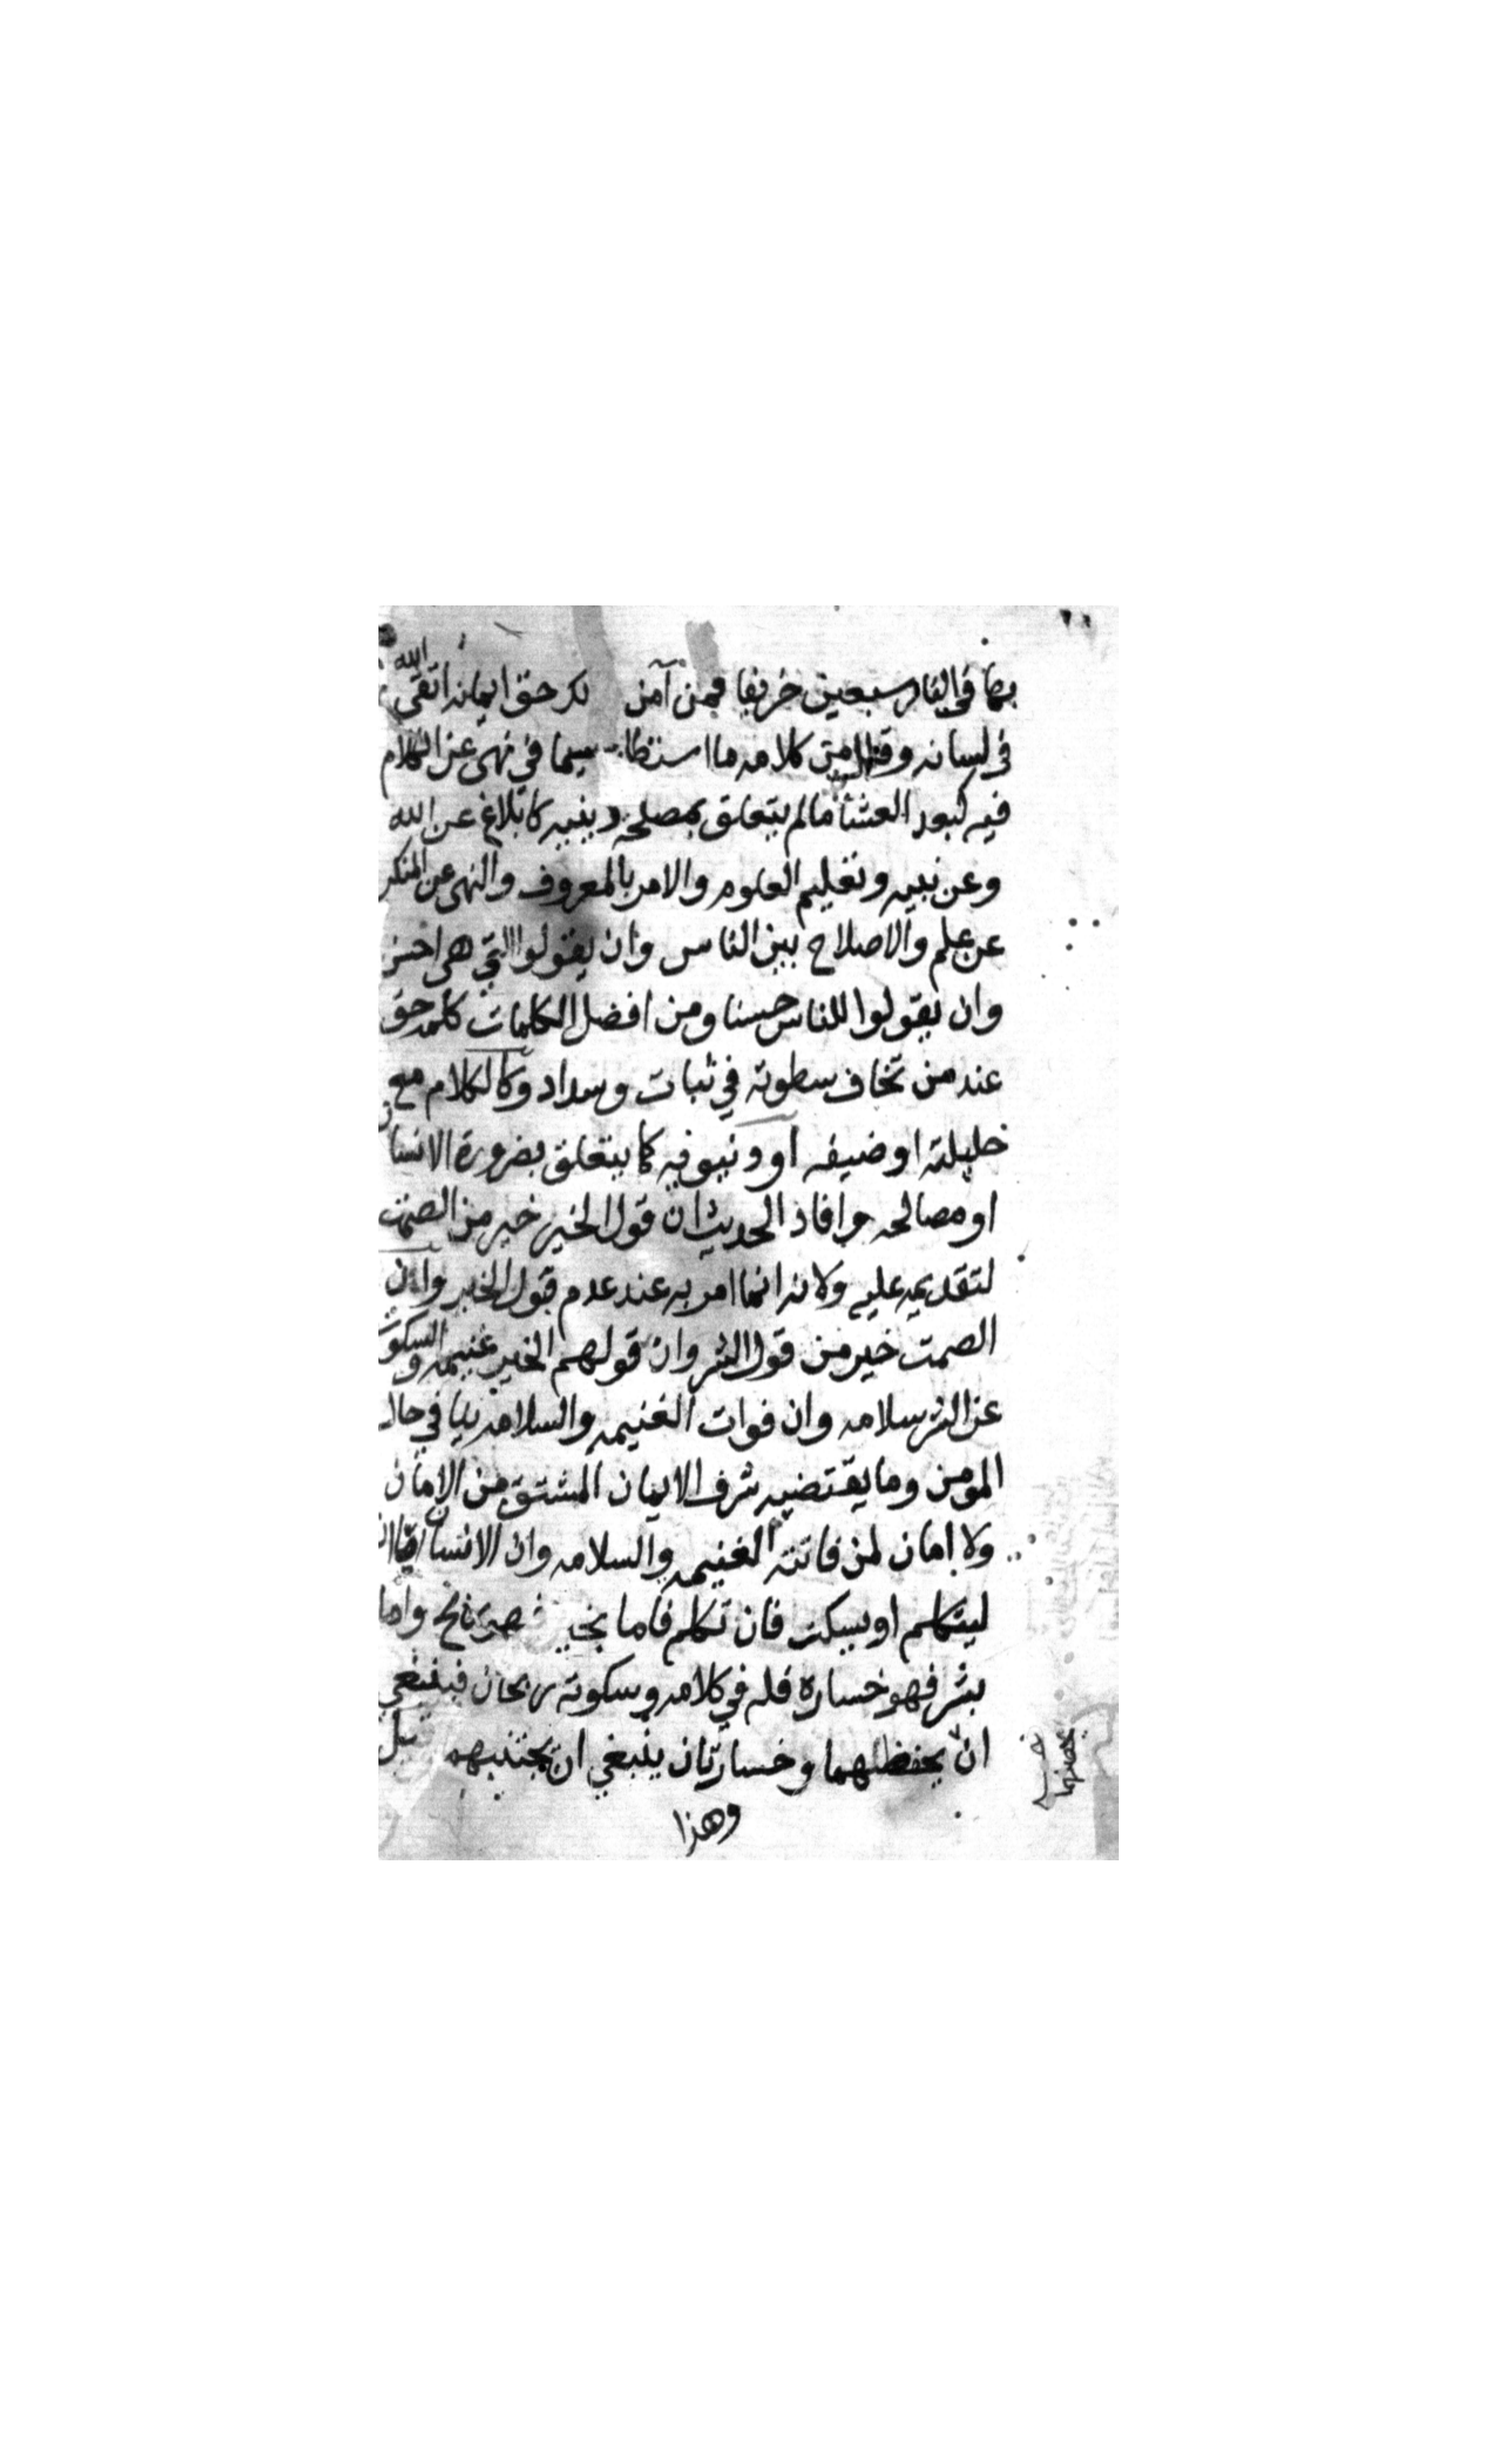 بها في النار سبعين خريفا فمن آمن لك حق ايمانه اتقى الله
في لسانه وقلل من كلامه ما استطا سيما في نهي عن الكلام
فيه كبعد العشا مالم يتعلق بمصلحه دينيه كابلاغ عن الله
وعن نبيه وتعليم العلوم والامر بالمعروف والنهي عن المنكر
عن علم والاصلاح بين الناس وان يقولوا التي هي احسن
وان يقولوا للناس حسنا ومن افضل الكلمات كلمه حق
عند من تخاف سطوته في ثبات وسداد وكالكلام مع
حليلته او ضيفه او دنيويه كما يتعلق بضرورة الانسان
او مصالحه وافاد الحديث ان قول الخير خير من الصمت
لتقديمه عليه ولانه انما امر به عند عدم قول الخير وان
الصمت خير من قول الشر وان قولهم الخير غنيمه والسكوت
عن الشر سلامه وان فوات الغنيمه والسلامه ينافي حال
المومن وما يقتضيه شرف الايمان المشتق من الامان
ولا امان لمن فاتته الغنيمه والسلامه وان الانسان اما ان
ليتكلم او يسكت فان تكلم فاما بخير فهو رابح واما
بشر فهو خساره فله في كلامه وسكوته ربحان فينبغي
ان يحفظهما وخسارتان ينبغي ان يجتنبهم بل
وهذا